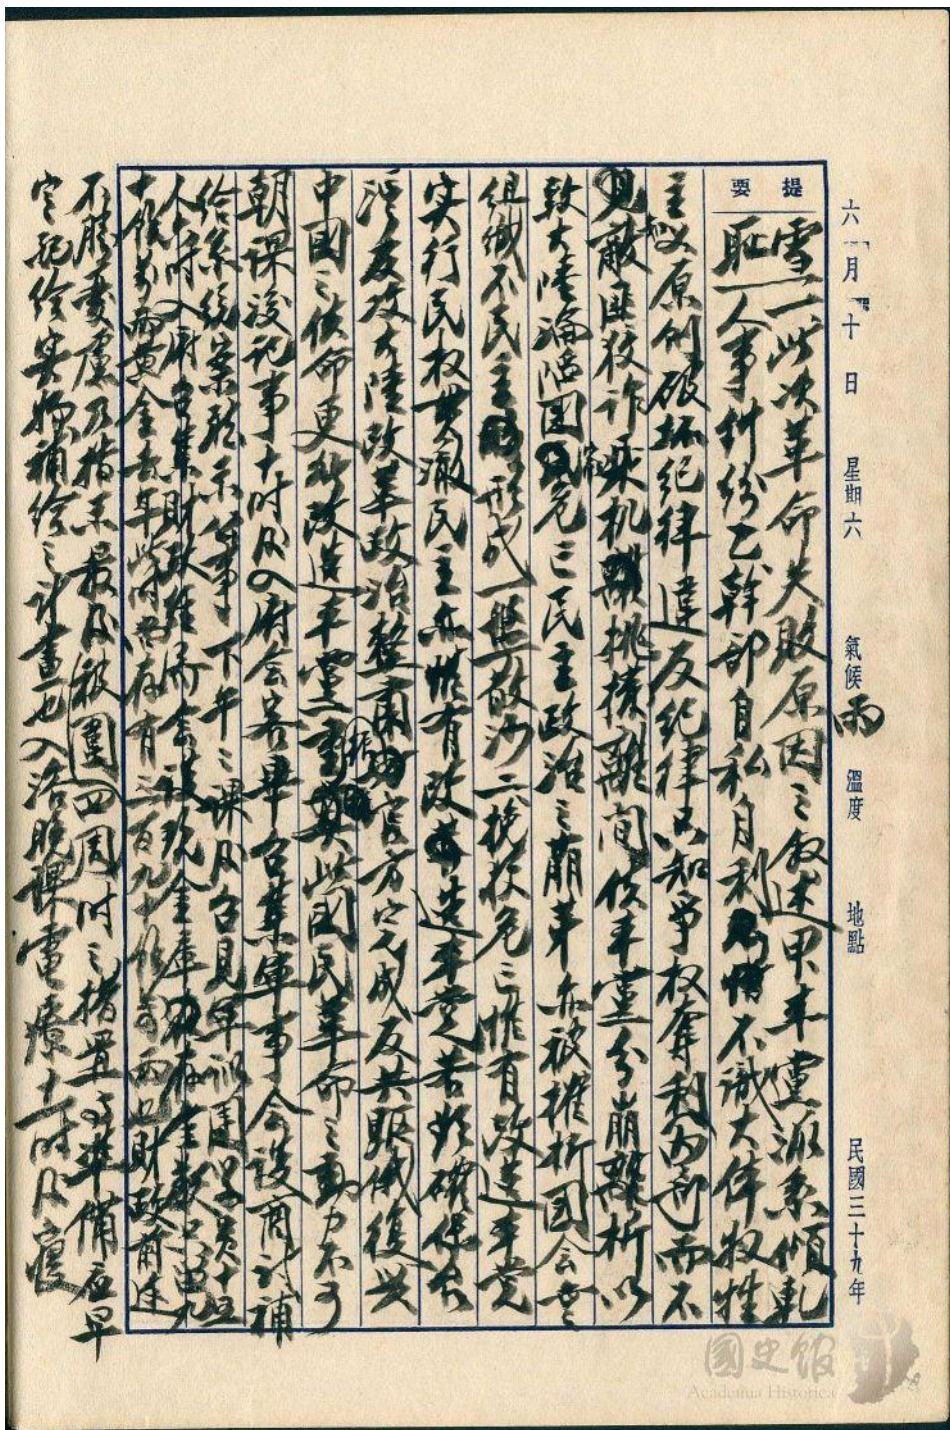 六月十日 星期六 氣候雨 溫度 地點 民國三十九年
提要
雪一、此次革命失敗原因之敘述甲本黨派系傾軋
恥一人事糾紛乙幹部自私自利不識大体牺牲
主義原則破坏紀律違反紀律只知爭权奪利內訌而不
知敵匪狡诈乘机挑撥離间使本黨分崩離析以
致大陸淪陷國危三民主政治之萌芽亦被摧折国会無
組織不民主形成一盤散沙二挽救危亡惟有改造本党
实行民权貫澈民主亦惟有改造本党若非確保台
湾反攻大陸政革政治整肅官方完成反共馭俄復兴
中國之使命更非改造本黨重此國民革命之動力不可
朝課後記事十时後入府会客畢召集軍事会談商讨補
给系统案批示等事下午二课後召見軍训团学员十五
人十时入府召集財政经济会談现金庫存金数只有九
十餘万两黄金去年此时尚存有三百九十餘万两也財政前途
不勝憂慮乃指示最後被圍四周时之措置与準備应早
定配给实物補给之计畫也入浴晚課電療十一时後寢
國史館
Academia Historica